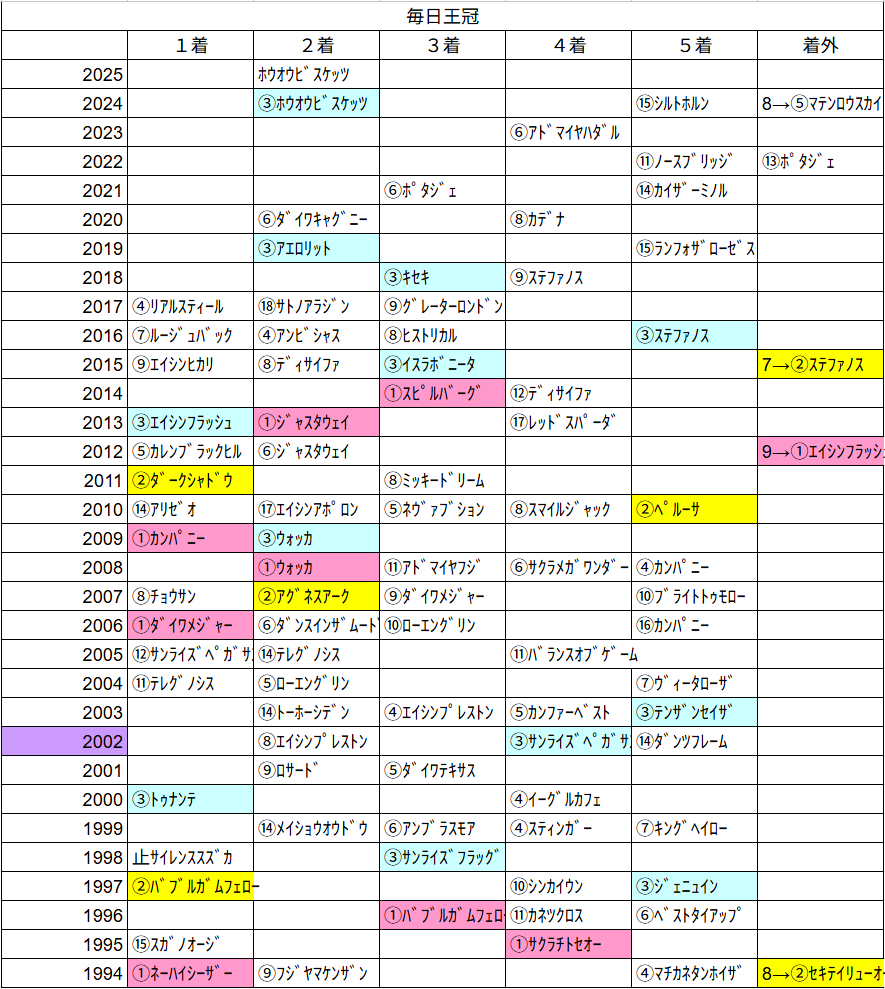 毎日王冠
１着 ２着 ３着 ４着 ５着 着外
2025 ﾎｳｵｳﾋﾞｽｹｯﾂ
2024 ③ﾎｳｵｳﾋﾞｽｹｯﾂ ⑮ｼﾙﾄﾎﾙﾝ 8→⑤ﾏﾃﾝﾛｳｽｶｲ
2023 ⑥ｱﾄﾞﾏｲﾔﾊﾀﾞﾙ
2022 ⑪ﾉｰｽﾌﾞﾘｯｼﾞ ⑬ﾎﾟﾀｼﾞｪ
2021 ⑥ﾎﾟﾀｼﾞｪ ⑭ｶｲｻﾞｰﾐﾉﾙ
2020 ⑥ﾀﾞｲﾜｷｬｸﾞﾆｰ ⑧ｶﾃﾞﾅ
2019 ③ｱｴﾛﾘｯﾄ ⑮ﾗﾝﾌｫｻﾞﾛｰｾﾞｽ
2018 ③ｷｾｷ ⑨ｽﾃﾌｧﾉｽ
2017 ④ﾘｱﾙｽﾃｨｰﾙ ⑱ｻﾄﾉｱﾗｼﾞﾝ ⑨ｸﾞﾚｰﾀｰﾛﾝﾄﾞﾝ
2016 ⑦ﾙｰｼﾞｭﾊﾞｯｸ ④ｱﾝﾋﾞｼｬｽ ⑧ﾋｽﾄﾘｶﾙ ③ｽﾃﾌｧﾉｽ
2015 ⑨ｴｲｼﾝﾋｶﾘ ⑧ﾃﾞｨｻｲﾌｧ ③ｲｽﾗﾎﾞﾆｰﾀ 7→②ｽﾃﾌｧﾉｽ
2014 ①ｽﾋﾟﾙﾊﾞｰｸﾞ ⑫ﾃﾞｨｻｲﾌｧ
2013 ③ｴｲｼﾝﾌﾗｯｼｭ ①ｼﾞｬｽﾀｳｪｲ ⑰ﾚｯﾄﾞｽﾊﾟｰﾀﾞ
2012 ⑤ｶﾚﾝﾌﾞﾗｯｸﾋﾙ ⑥ｼﾞｬｽﾀｳｪｲ 9→①ｴｲｼﾝﾌﾗｯｼｭ
2011 ②ﾀﾞｰｸｼｬﾄﾞｳ ⑧ﾐｯｷｰﾄﾞﾘｰﾑ
2010 ⑭ｱﾘｾﾞｵ ⑰ｴｲｼﾝｱﾎﾟﾛﾝ ⑤ﾈｳﾞｧﾌﾞｼｮﾝ ⑧ｽﾏｲﾙｼﾞｬｯｸ ②ﾍﾟﾙｰｻ
2009 ①ｶﾝﾊﾟﾆｰ ③ｳｫｯｶ
2008 ①ｳｫｯｶ ⑪ｱﾄﾞﾏｲﾔﾌｼﾞ ⑥ｻｸﾗﾒｶﾞﾜﾝﾀﾞｰ ④ｶﾝﾊﾟﾆｰ
2007 ⑧ﾁｮｳｻﾝ ②ｱｸﾞﾈｽｱｰｸ ⑨ﾀﾞｲﾜﾒｼﾞｬｰ ⑩ﾌﾞﾗｲﾄﾄｩﾓﾛｰ
2006 ①ﾀﾞｲﾜﾒｼﾞｬｰ ⑥ﾀﾞﾝｽｲﾝｻﾞﾑｰﾄﾞ ⑩ﾛｰｴﾝｸﾞﾘﾝ ⑯ｶﾝﾊﾟﾆｰ
2005 ⑫ｻﾝﾗｲｽﾞﾍﾟｶﾞｻ ⑭ﾃﾚｸﾞﾉｼｽ ⑪ﾊﾞﾗﾝｽｵﾌﾞｹﾞｰﾑ
2004 ⑪ﾃﾚｸﾞﾉｼｽ ⑤ﾛｰｴﾝｸﾞﾘﾝ ⑦ｳﾞｨｰﾀﾛｰｻﾞ
2003 ⑭ﾄｰﾎｰｼﾃﾞﾝ ④ｴｲｼﾝﾌﾟﾚｽﾄﾝ ⑤ｶﾝﾌｧｰﾍﾞｽﾄ ③ﾃﾝｻﾞﾝｾｲｻﾞ
2002 ⑧ｴｲｼﾝﾌﾟﾚｽﾄﾝ ③ｻﾝﾗｲｽﾞﾍﾟｶﾞｻ ⑭ﾀﾞﾝﾂﾌﾚｰﾑ
2001 ⑨ﾛｻｰﾄﾞ ⑤ﾀﾞｲﾜﾃｷｻｽ
2000 ③ﾄｩﾅﾝﾃ ④ｲｰｸﾞﾙｶﾌｪ
1999 ⑭ﾒｲｼｮｳｵｳﾄﾞｳ ⑥ｱﾝﾌﾞﾗｽﾓｱ ④ｽﾃｨﾝｶﾞｰ ⑦ｷﾝｸﾞﾍｲﾛｰ
1998 止ｻｲﾚﾝｽｽｽﾞｶ ③ｻﾝﾗｲｽﾞﾌﾗｯｸﾞ
1997 ②ﾊﾞﾌﾞﾙｶﾞﾑﾌｪﾛｰ ⑩ｼﾝｶｲｳﾝ ③ｼﾞｪﾆｭｲﾝ
1996 ①ﾊﾞﾌﾞﾙｶﾞﾑﾌｪﾛｰ ⑪ｶﾈﾂｸﾛｽ ⑥ﾍﾞｽﾄﾀｲｱｯﾌﾟ
1995 ⑮ｽｶﾞﾉｵｰｼﾞ ①ｻｸﾗﾁﾄｾｵｰ
1994 ①ﾈｰﾊｲｼｰｻﾞｰ ⑨ﾌｼﾞﾔﾏｹﾝｻﾞﾝ ④ﾏﾁｶﾈﾀﾝﾎｲｻﾞ 8→②ｾｷﾃｲﾘｭｰｵｰ